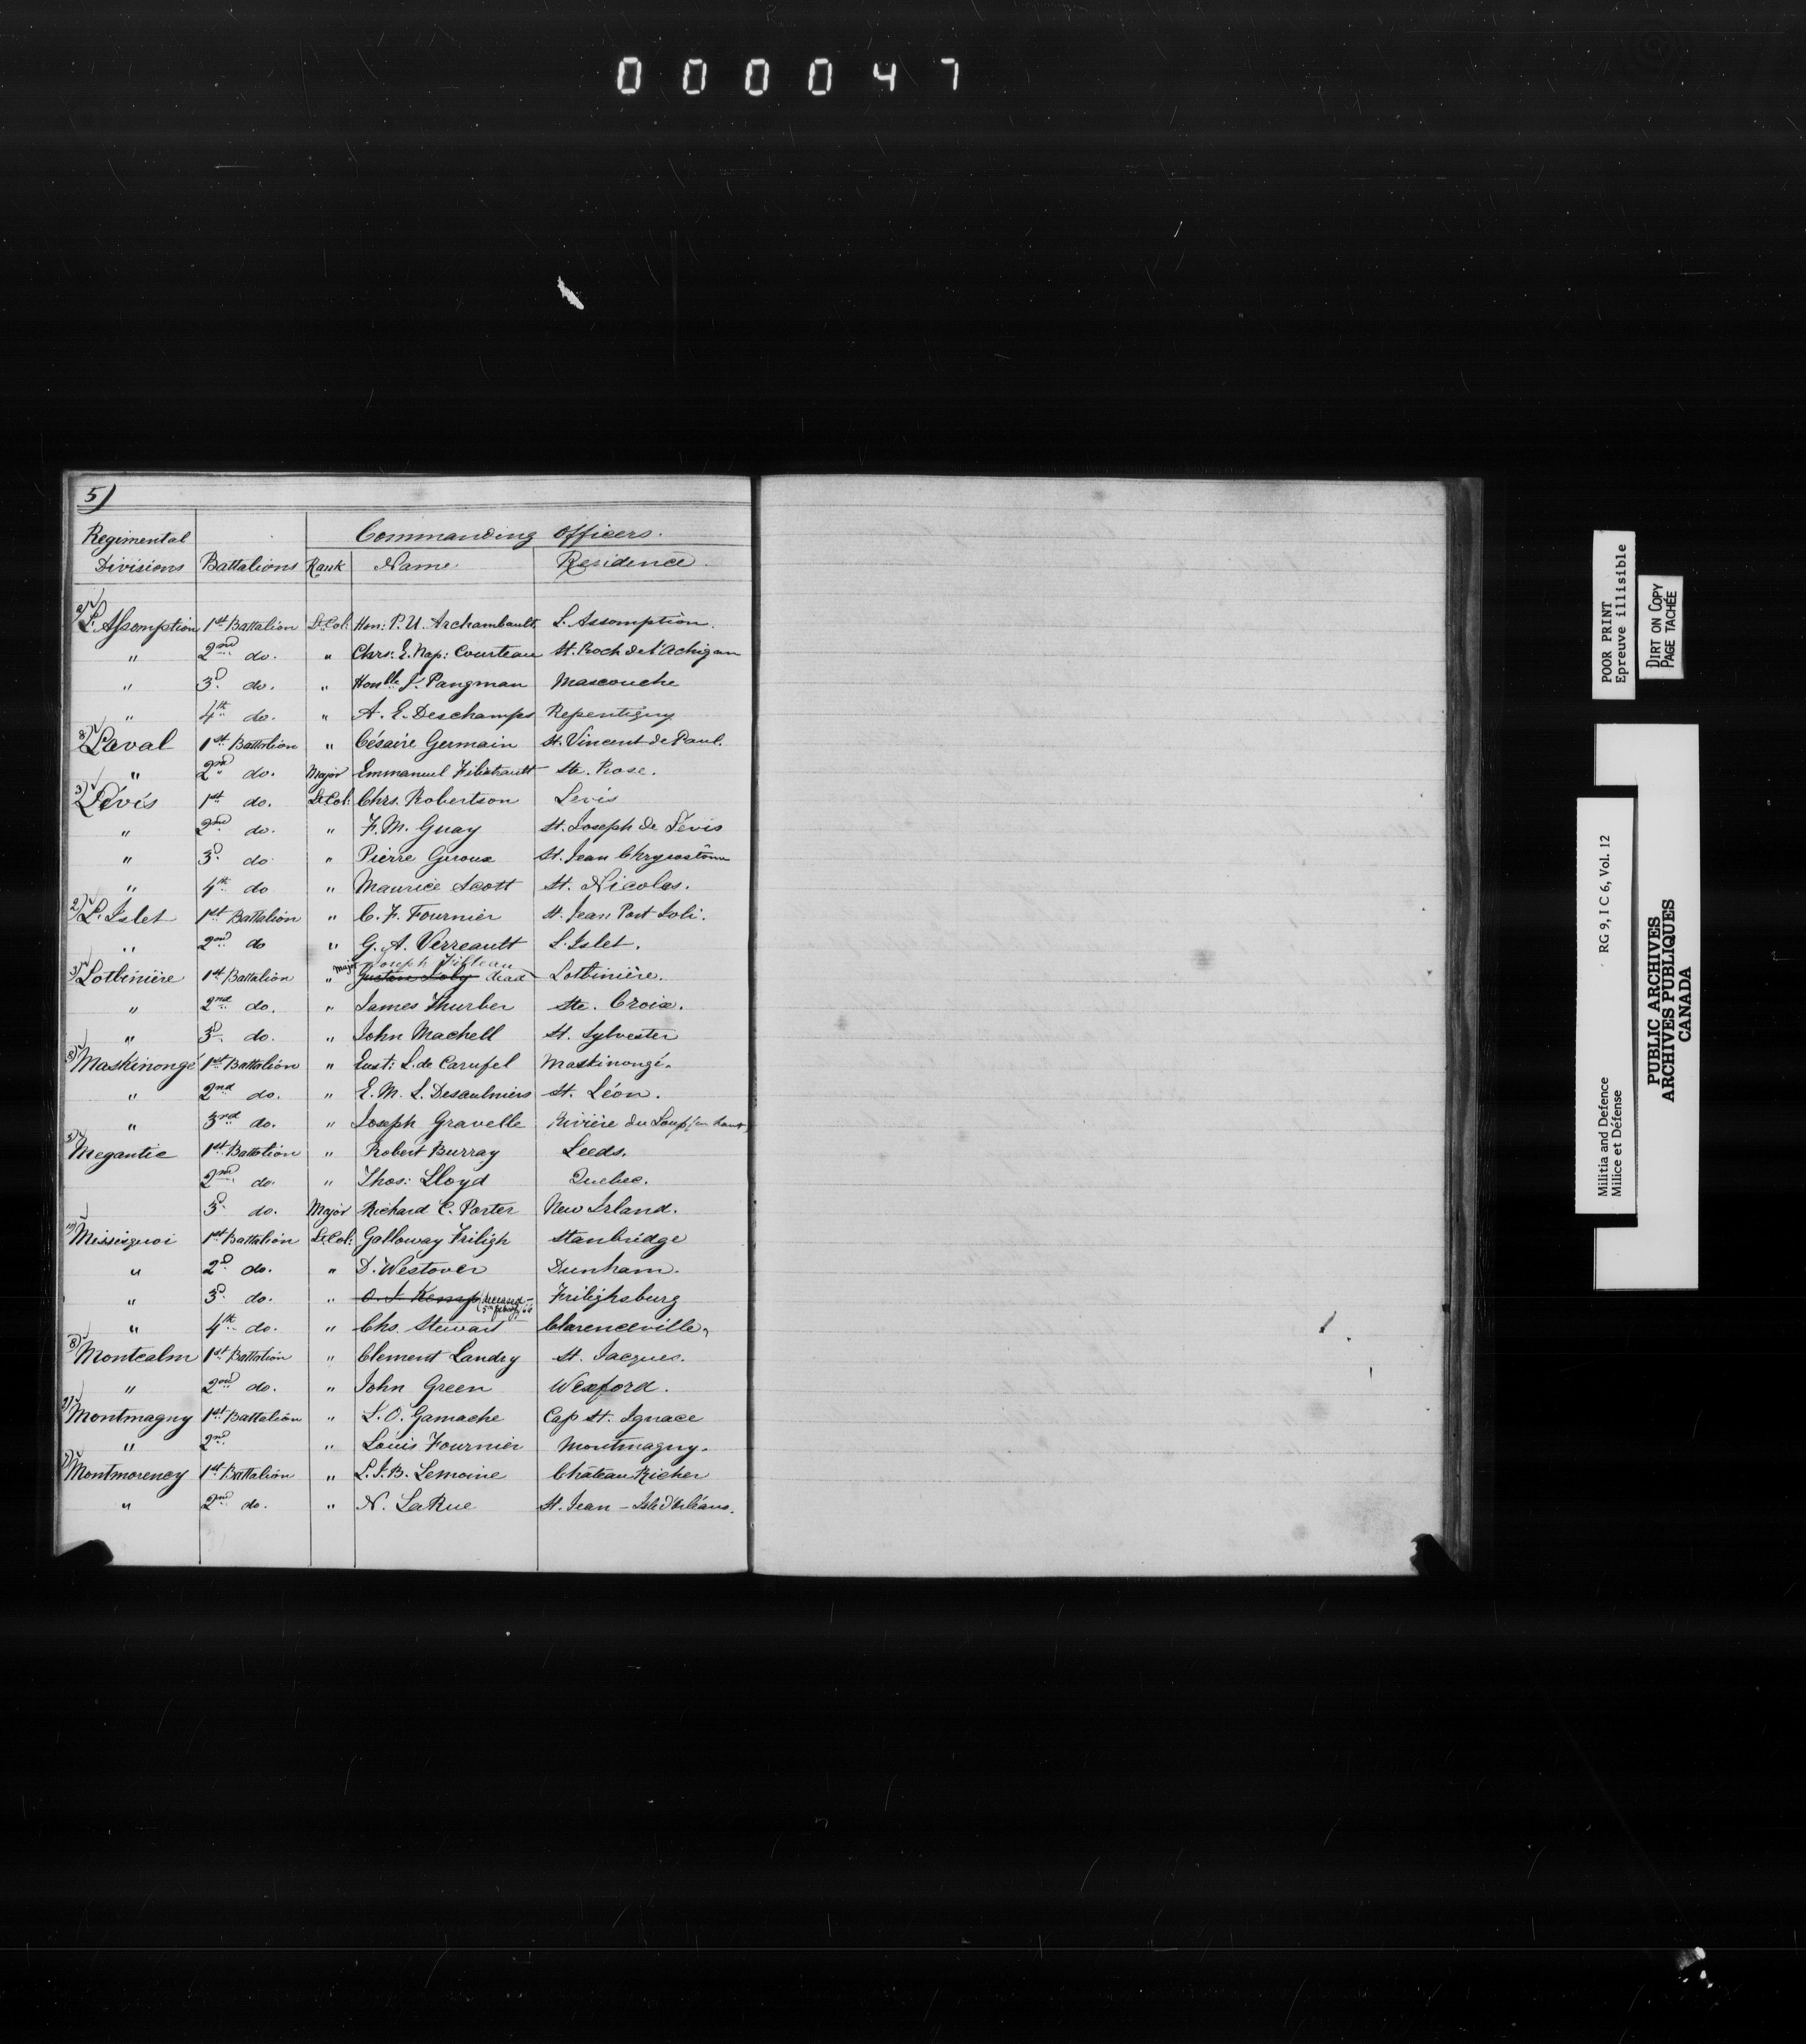 000047
5)
Commanding Officers.
Regimental Divisions Battalions Rank Name Residence
2) L'Assomption 1st Battalion Lt Col: Hon: P. U. Archambault L'Assomption.
" 2nd do. " Chrs. E. Nap: Courteau St. Roch de l'Achigan
" 3d do. " Honble L. Pangman Mascouche
" 4th do. " A. E. Deschamps Repentigny
8) Laval 1st Battalion " Césaire Germain St. Vincent de Paul.
" 2nd do. Major Emmanuel Filiatrault Ste. Rose.
3) Lévis 1st do. Lt Col: Chrs. Robertson Levis
" 2nd do. " F. M. Guay St. Joseph de Lévis
" 3d do " Pierre Giroux St. Jean Chrysostôme
" 4th do " Maurice Scott St. Nicolas.
2) L'Islet 1st Battalion " C. F. Fournier St. Jean Port Joli.
" 2nd do " G. A. Verreault L'Islet.
Major Joseph Filteau
3) Lotbinière 1st Battalion " Gustave Joly dead Lotbinière.
" 2nd do. " James Thurber Ste. Croix.
" 3d do. " John Machell St. Sylvester
8) Maskinongé 1st Battalion " Eust: L. de Carufel Maskinongé.
" 2nd do. " E. M. L. Desaulniers St. Léon.
" 3rd do. " Joseph Gravelle Rivière du Loup (en haut)
5) Megantic 1st Battalion " Robert Burray Leeds.
2nd do. " Thos: Lloyd Quebec.
3d do. Major Richard C. Porter New Irland.
10) Missisquoi 1st Battalion Lt Col: Galloway Friligh Stanbridge
" 2d do. " D. Westover Dunham.
" 3d do. " O. J. Kemp (deceased - Frilighsburg
" 4th do. " Chs. Stewart Clarenceville.
8) Montcalm 1st Battalion " Clement Landry St. Jacques.
" 2nd do. " John Green Wexford.
2) Montmagny 1st Battalion " L. O. Gamache Cap St. Ignace
" 2nd " Louis Fournier Montmagny.
Montmorency 1st Battalion " L. J. B. Lemoine Château Richer
" 2nd do. " N. LaRue St. Jean - Isle d'Orléans.
POOR PRINT
Epreuve illisible
DIRT ON COPY
PAGE TACHÉE
Militia and Defence RG 9, I C 6, Vol. 12
Milice et Défense
PUBLIC ARCHIVES
ARCHIVES PUBLIQUES
CANADA